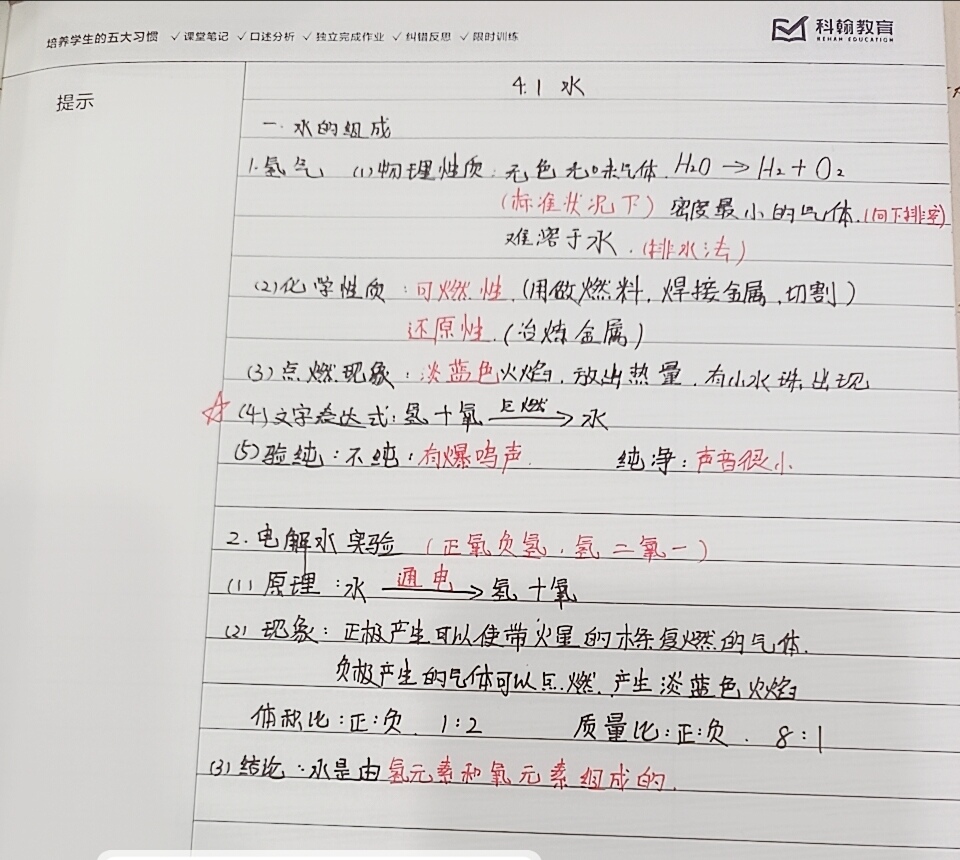 培养学生的五大习惯 ✓课堂笔记 ✓口述分析 ✓独立完成作业 ✓纠错反思 ✓限时训练
科翰教育
KEHAN EDUCATION
提示
4.1 水
一.水的组成
1.氢气 (1)物理性质:无色无味气体. H₂O → H₂ + O₂
(标准状况下) 密度最小的气体.(向下排空)
难溶于水.(排水法)
(2)化学性质:可燃性.(用做燃料,焊接金属,切割)
还原性.(冶炼金属)
(3)点燃现象:淡蓝色火焰,放出热量,有小水珠出现
☆(4)文字表达式:氢+氧 点燃→ 水
(5)验纯:不纯:有爆鸣声. 纯净:声音很小.
2.电解水实验 (正氧负氢,氢二氧一)
(1)原理:水 通电→ 氢+氧
(2)现象:正极产生可以使带火星的木条复燃的气体.
负极产生的气体可以点燃.产生淡蓝色火焰
体积比:正:负. 1:2 质量比:正:负. 8:1
(3)结论:水是由氢元素和氧元素组成的.